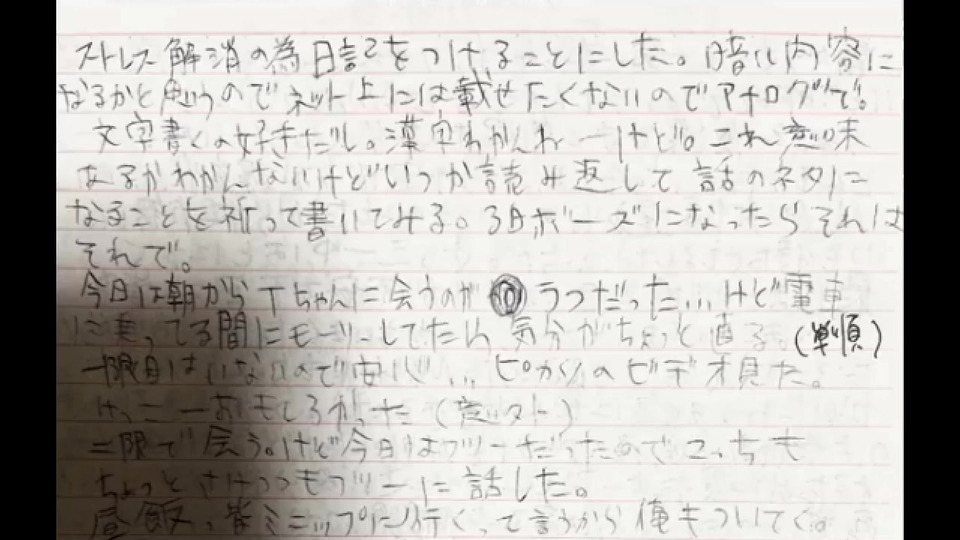 ストレス解消の為日記をつけることにした。暗い内容に
なるかと思うのでネット上には載せたくないのでアナログで。
文字書くの好きだし。漢字わかんねーけど。これ意味
あるかわかんないけどいつか読み返して話のネタに
なることを祈って書いてみる。3日ボーズになったらそれは
それで。
今日は朝からTちゃんに会うのが うつだった...けど電車
に乗ってる間にモーツーしてたら気分がちょっと直る。(単順)
一限目はいないので安心...ピカソのビデオ見た。
けっこーおもしろかった
二限で会う。けど今日はフツーだったのでこっちも
ちょっとさけつつもフツーに話した。
昼飯、皆ミニップに行くって言うから俺もついてく。